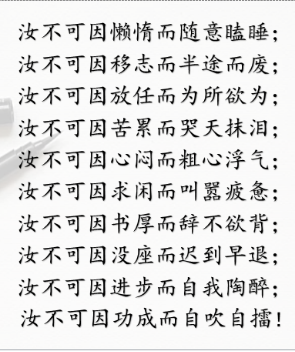 汝不可因懒惰而随意瞌睡；
汝不可因移志而半途而废；
汝不可因放任而为所欲为；
汝不可因苦累而哭天抹泪；
汝不可因心闷而粗心浮气；
汝不可因求闲而叫嚣疲惫；
汝不可因书厚而辞不欲背；
汝不可因没座而迟到早退；
汝不可因进步而自我陶醉；
汝不可因功成而自吹自擂！